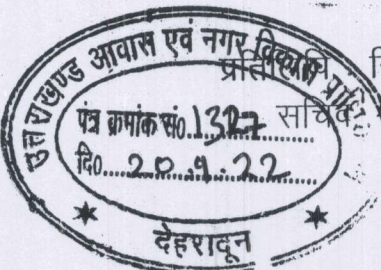 उत्तराखण्ड आवास एवं नगर विकास
पत्र क्रमांक सं0 1327
दि0 20.9.22
देहरादून
सचिव